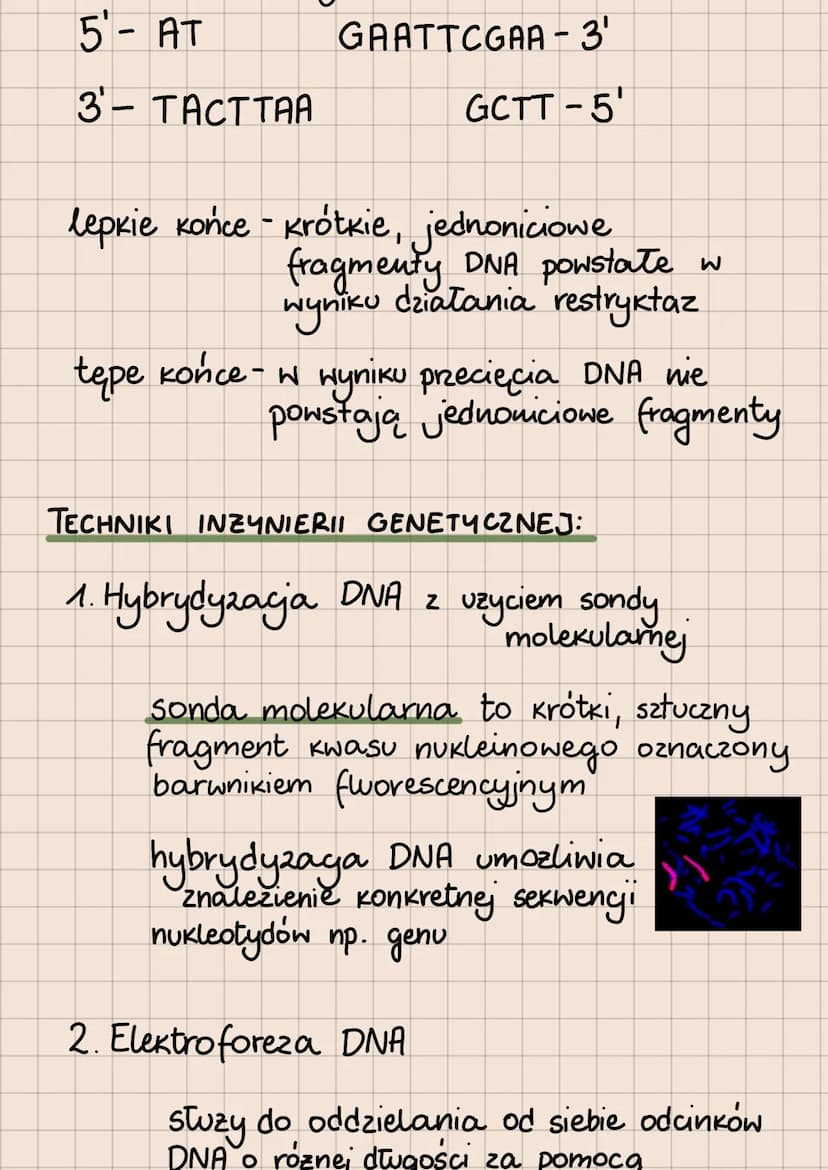 5'- AT GAATTCGAA - 3'
3'- TACTTAA GCTT - 5'
lepkie końce - krótkie, jednoniciowe
fragmenty DNA powstałe w
wyniku działania restryktaz
tępe końce - w wyniku przecięcia DNA nie
powstają jednoniciowe fragmenty
TECHNIKI INŻYNIERII GENETYCZNEJ:
1. Hybrydyzacja DNA z użyciem sondy
molekularnej
sonda molekularna to krótki, sztuczny
fragment kwasu nukleinowego oznaczony
barwnikiem fluorescencyjnym
hybrydyzacja DNA umożliwia
znalezienie konkretnej sekwencji
nukleotydów np. genu
2. Elektroforeza DNA
służy do oddzielania od siebie odcinków
DNA o różnej długości za pomocą